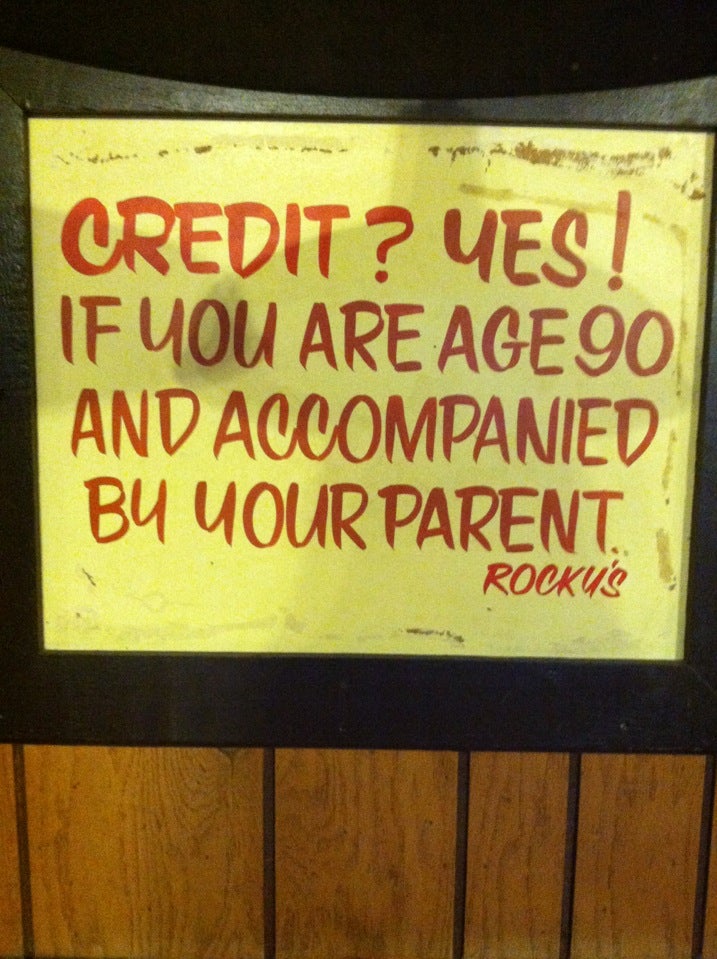 CREDIT? YES!
IF YOU ARE AGE 90
AND ACCOMPANIED
BY YOUR PARENT.
ROCKY'S